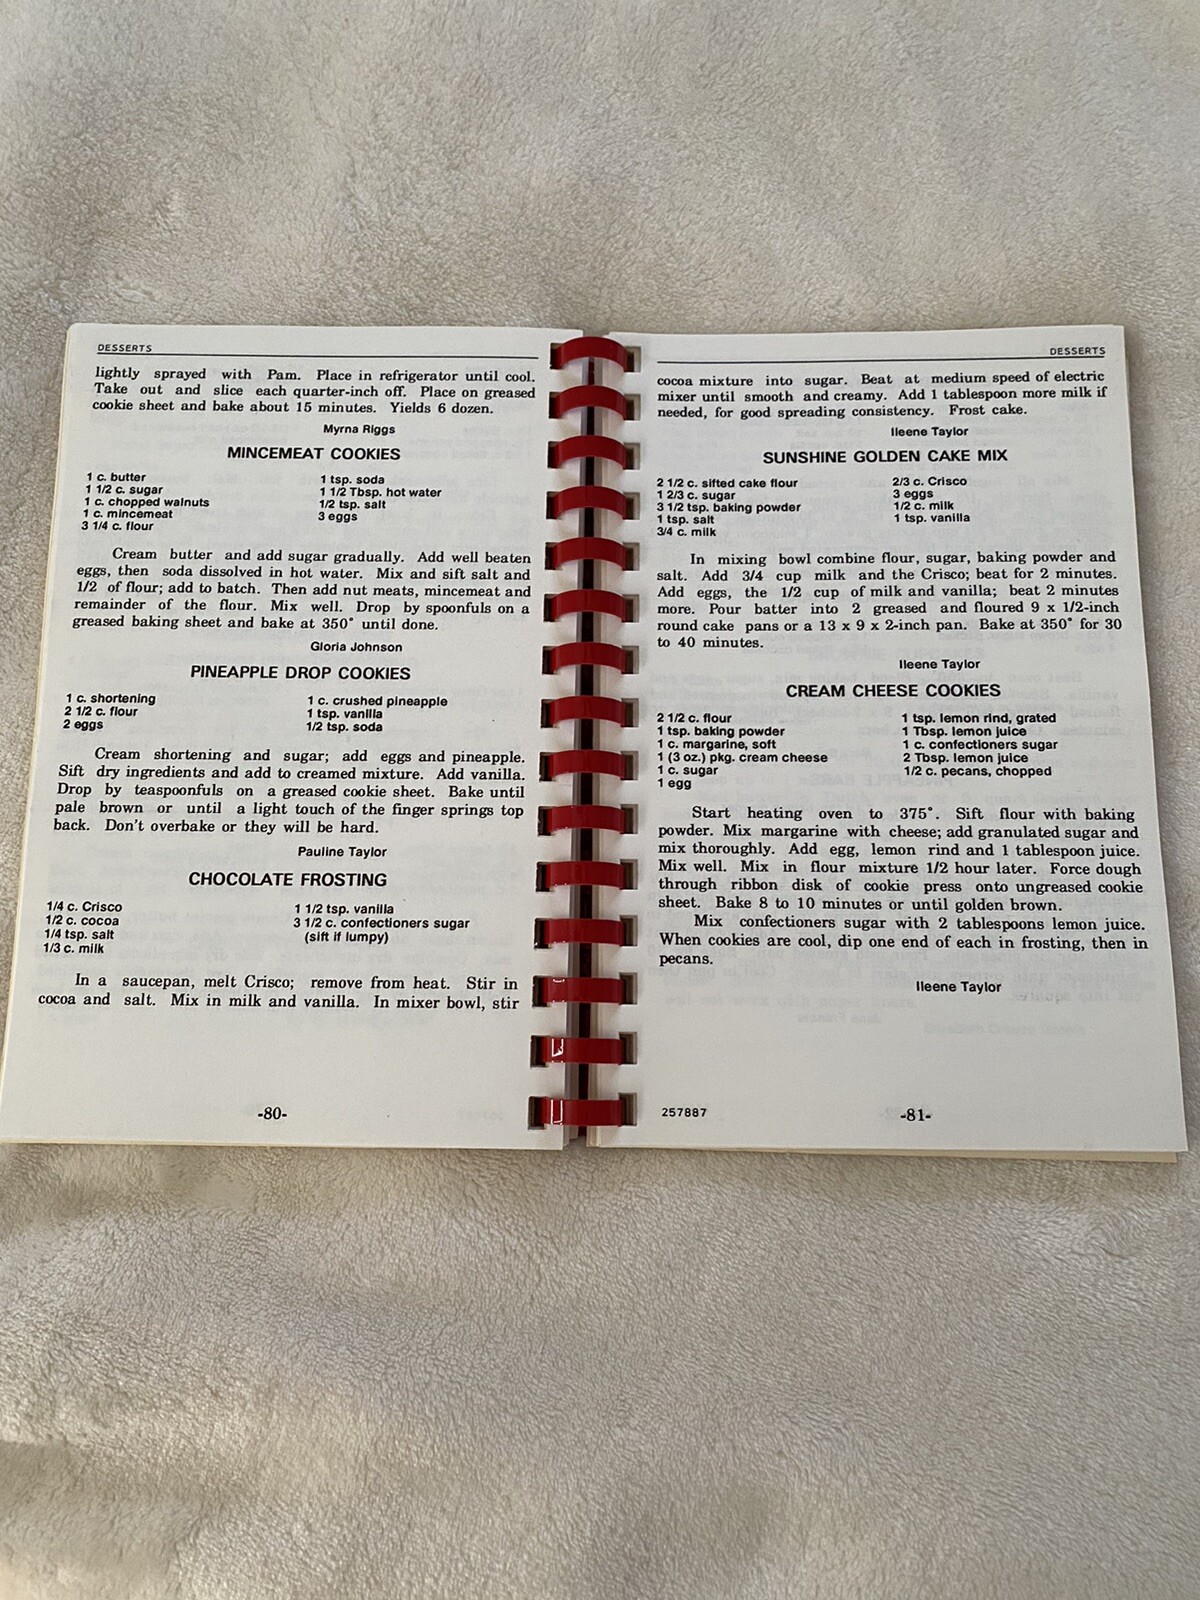 DESSERTS
lightly sprayed with Pam. Place in refrigerator until cool.
Take out and slice each quarter-inch off. Place on greased
cookie sheet and bake about 15 minutes. Yields 6 dozen.
Myrna Riggs
MINCEMEAT COOKIES
1 c. butter
1 1/2 c. sugar
1 c. chopped walnuts
1 c. mincemeat
3 1/4 c. flour
1 tsp. soda
1 1/2 Tbsp. hot water
1/2 tsp. salt
3 eggs
Cream butter and add sugar gradually. Add well beaten
eggs, then soda dissolved in hot water. Mix and sift salt and
1/2 of flour; add to batch. Then add nut meats, mincemeat and
remainder of the flour. Mix well. Drop by spoonfuls on a
greased baking sheet and bake at 350° until done.
Gloria Johnson
PINEAPPLE DROP COOKIES
1 c. shortening
2 1/2 c. flour
2 eggs
1 c. crushed pineapple
1 tsp. vanilla
1/2 tsp. soda
Cream shortening and sugar; add eggs and pineapple.
Sift dry ingredients and add to creamed mixture. Add vanilla.
Drop by teaspoonfuls on a greased cookie sheet. Bake until
pale brown or until a light touch of the finger springs top
back. Don't overbake or they will be hard.
Pauline Taylor
CHOCOLATE FROSTING
1/4 c. Crisco
1/2 c. cocoa
1/4 tsp. salt
1/3 c. milk
1 1/2 tsp. vanilla
3 1/2 c. confectioners sugar
(sift if lumpy)
In a saucepan, melt Crisco; remove from heat. Stir in
cocoa and salt. Mix in milk and vanilla. In mixer bowl, stir
-80-
DESSERTS
cocoa mixture into sugar. Beat at medium speed of electric
mixer until smooth and creamy. Add 1 tablespoon more milk if
needed, for good spreading consistency. Frost cake.
Ileene Taylor
SUNSHINE GOLDEN CAKE MIX
2 1/2 c. sifted cake flour
1 2/3 c. sugar
3 1/2 tsp. baking powder
1 tsp. salt
3/4 c. milk
2/3 c. Crisco
3 eggs
1/2 c. milk
1 tsp. vanilla
In mixing bowl combine flour, sugar, baking powder and
salt. Add 3/4 cup milk and the Crisco; beat for 2 minutes.
Add eggs, the 1/2 cup of milk and vanilla; beat 2 minutes
more. Pour batter into 2 greased and floured 9 x 1/2-inch
round cake pans or a 13 x 9 x 2-inch pan. Bake at 350° for 30
to 40 minutes.
Ileene Taylor
CREAM CHEESE COOKIES
2 1/2 c. flour
1 tsp. baking powder
1 c. margarine, soft
1 (3 oz.) pkg. cream cheese
1 c. sugar
1 egg
1 tsp. lemon rind, grated
1 Tbsp. lemon juice
1 c. confectioners sugar
2 Tbsp. lemon juice
1/2 c. pecans, chopped
Start heating oven to 375°. Sift flour with baking
powder. Mix margarine with cheese; add granulated sugar and
mix thoroughly. Add egg, lemon rind and 1 tablespoon juice.
Mix well. Mix in flour mixture 1/2 hour later. Force dough
through ribbon disk of cookie press onto ungreased cookie
sheet. Bake 8 to 10 minutes or until golden brown.
Mix confectioners sugar with 2 tablespoons lemon juice.
When cookies are cool, dip one end of each in frosting, then in
pecans.
Ileene Taylor
257887
-81-